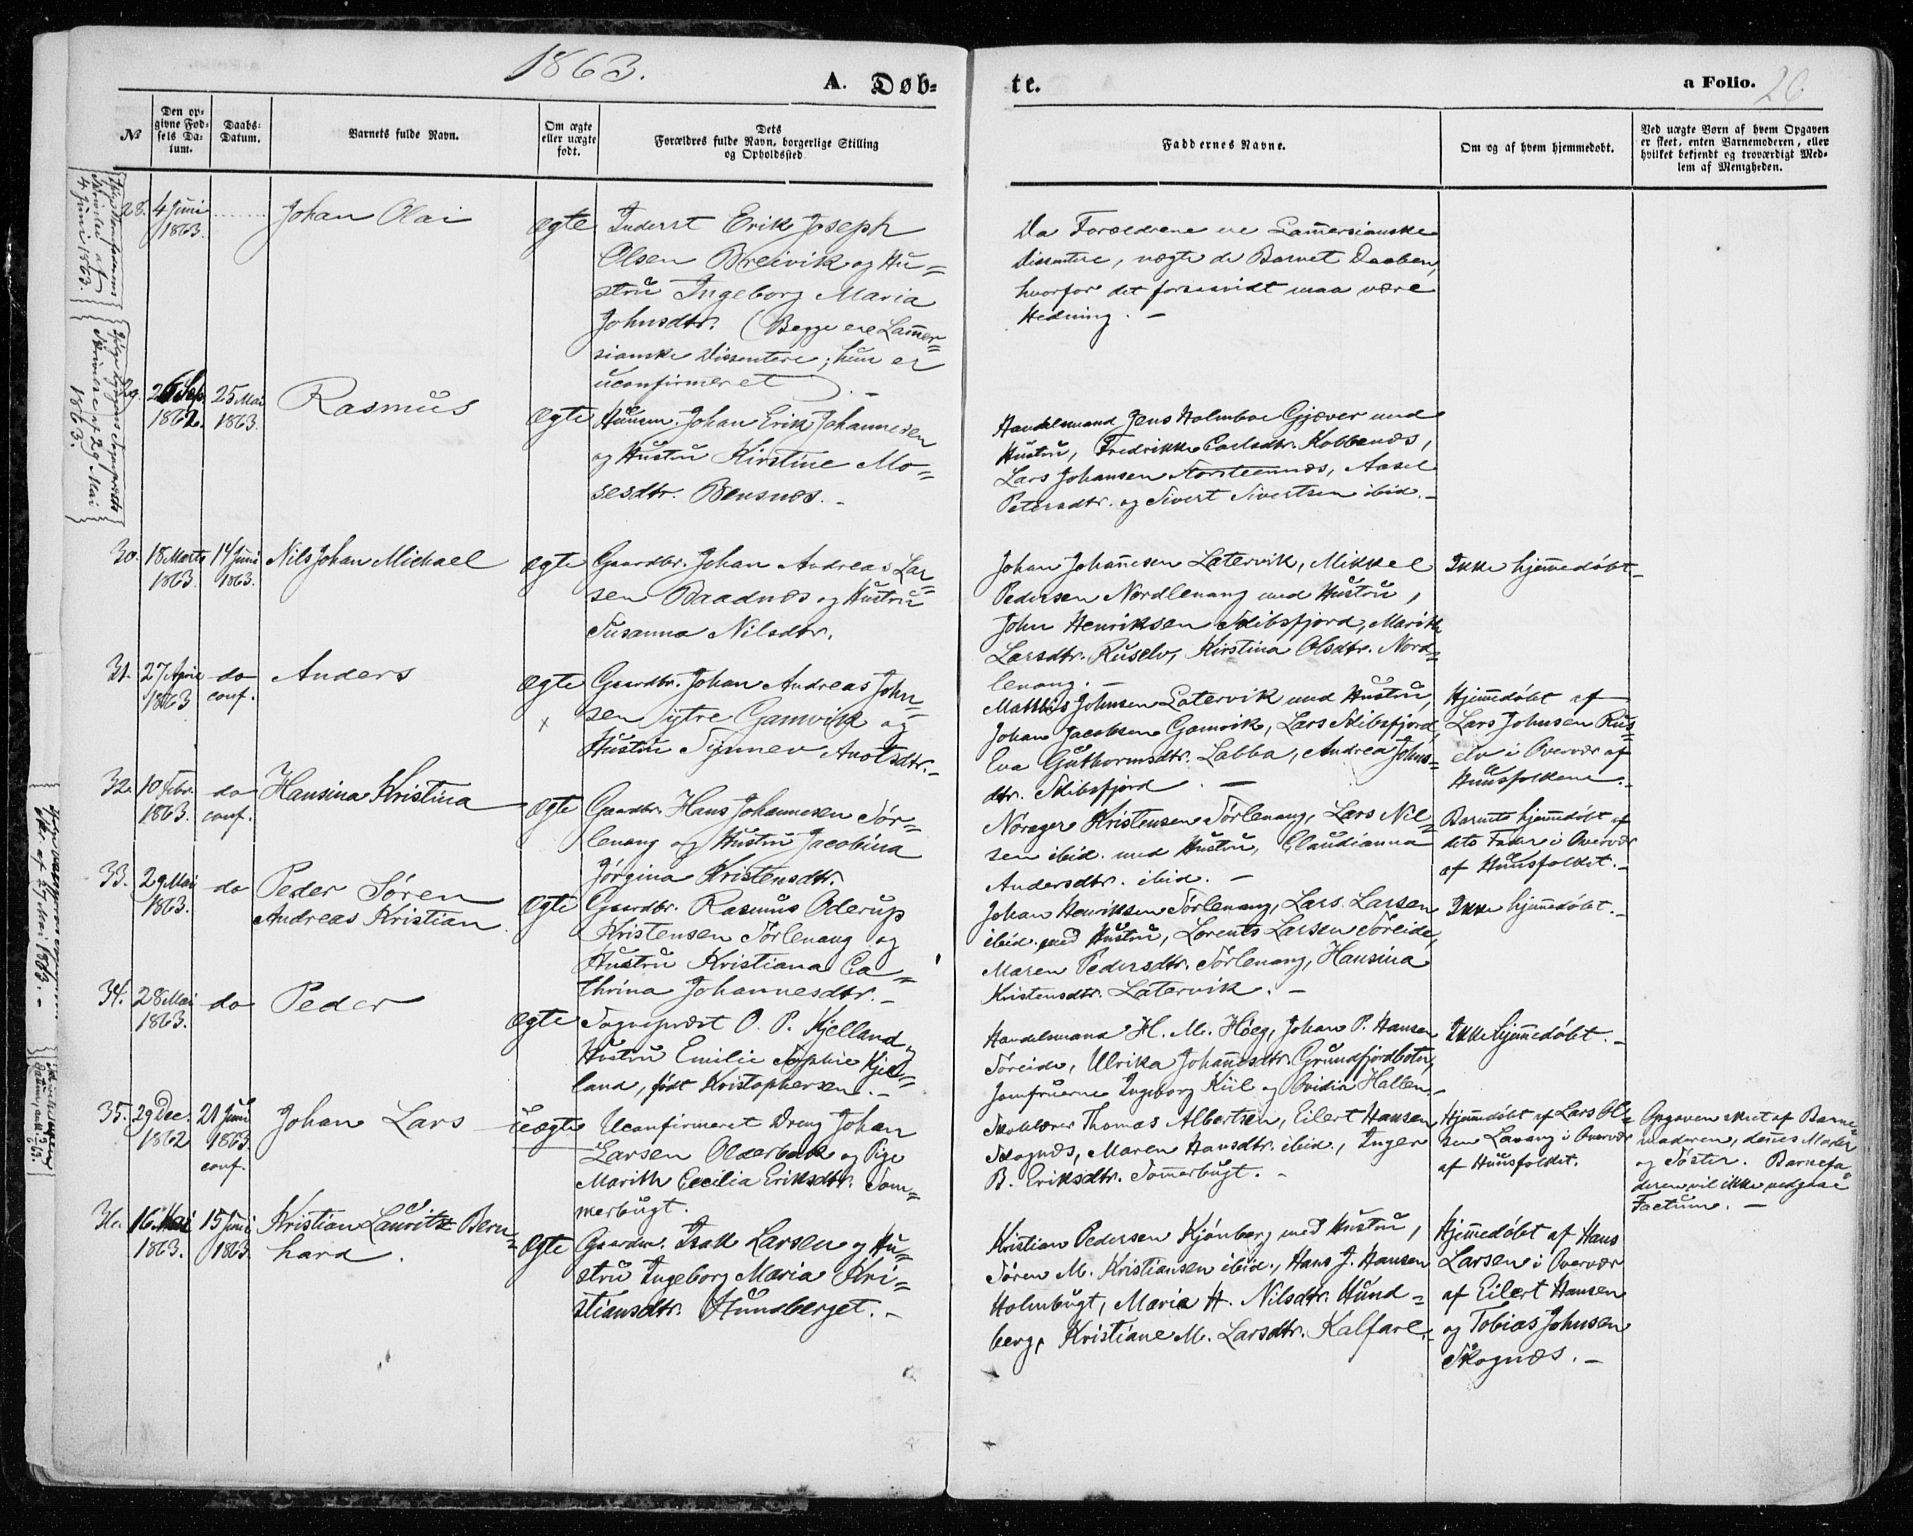 1863.
A. Døb=
te.
a Folio. 20
№
Den op=
givne Fød=
sels Da=
tum.
Daabs=
Datum.
Barnets fulde Navn.
Om ægte
eller uægte
født.
Dets
Forældres fulde Navn, borgerlige Stilling
og Opholdssted
Faddernes Navne.
Om og af hvem hjemmedøbt.
Ved uægte Børn af hvem Opgaven
er skeet, enten Barnemoderen, eller
hvilket bekjendt og troværdigt Med-
lem af Menigheden.
28.
4 Juni
1863.
Johan Olai
ægte
Inderst Erik Joseph
Olsen Breivik og Hu=
stru Ingeborg Maria
Johnsdtr. (Begge ere Lam̄er=
sianske Dissentere; hun er
uconfirmeret).
Da Forældrene ere Lam̄ersianske
Dissentere, nægte de Barnet Daaben,
hvorfor det forsaavidt maa være
Hedning. –
4 Juni 1863.
29.
26 Sep.
1862.
25 Mai
1863.
Rasmus
ægte
Huusm. Johan Erik Johannesen
og Hustru Kirstine Mo=
sesdtr. Bensnæs. –
Handelsmand Jens Holmboe Gjæver med
Hustru, Fredrikke Carlsdtr. Kobbenæs,
Lars Johansen Storsteennæs, Aasel
Petersdtr. og Sivert Sivertsen ibid. –
29. Mai
1863.
30.
18 Marts
1863.
14 Juni
1863.
Nils Johan Michael
ægte
Gaardbr. Johan Andreas Lar=
sen Baadnæs og Hustru
Susanna Nilsdtr.
Johan Johan̄esen Latervik, Mikkel
Pedersen Nordlenang med Hustru,
John Henriksen Skibsfjord, Marith
Larsdtr. Ruselv, Kirstina Olsdtr. Nord=
lenang. –
Ikke hjem̄edøbt –
31.
27 April
1863
do
conf.
Anders
ægte
x
Gaardbr. Johan Andreas John=
sen Ytre Gamvik og
Hustru Synnev Arolsdtr. –
Matthis Johnsen Latervik med Hustru,
Johan Jacobsen Gamvik, Lars Skibsfjord,
Eva Guthormsdtr. Labba, Andrea Johns=
dtr. Skibsfjord. –
Hjem̄edøbt af
Lars Johnsen Rus=
elv i Overvær af
Huusfolkene. –
32.
10 Febr.
1863.
do
conf.
Hansina Kristina
ægte
Gaardbr. Hans Johannesen Sør=
lenang og Hustru Jacobina
Jørgina Kristensdtr.
Norager Kristensen Sørlenang, Lars Nil=
sen ibid. med Hustru, Claudianna
Andersdtr. ibid. –
Barnets hjem̄edøbt af
dets Fader i Overvær
af Huusfolket. –
33.
29 Mai
1863.
do
Peder Søren
Andreas Kristian
ægte
Gaardbr. Rasmus Oderup
Kristensen Sørlenang og
Hustru Kristiana Ca=
thrina Johannesdtr. –
Johan Henriksen Sørlenang, Lars Larsen
ibid. med Hustru, Lorents Larsen Soreide,
Maren Pedersdtr. Sørlenang, Hansina
Kristensdtr. Latervik. –
Ikke hjem̄edøbt. –
34.
28 Mai
1863.
do
Peder
ægte
Sognepræst O. P. Kjelland og
Hustru Emilie Sophie Kjel=
land, født Kristophersen. –
Handelsmand H. M. Høeg, Johan P. Hansen
Soreide, Ulrika Johan̄esdtr. Grundfjordbotn,
Jomfruerne Ingeborg Kiil og Ovidia Hallen –
Ikke hjem̄edøbt. –
35.
29 Dec.
1862
21 Juni
1863
conf.
Johan Lars
uægte
Uconfirmeret Dreng Johan
Larsen Olderbak og Pige
Marith Cecilia Eriksdtr. Som=
merbugt.
Skolelærer Thomas Albertsen, Eilert Hansen
Skognæs, Maren Hansdtr. ibid., Inger
B. Eriksdtr. Som̄erbugt. –
Hjem̄edøbt af Lars Ol=
sen Lavang i Overvær
af Huusfolket.
Opgaven skeet af Barne=
moderen, den̄es Moder
og Søster. Barnefa=
deren vil ikke vedgaae
Factum. –
36.
16 Mai
1863.
15 Juni
1863.
Kristian Lauritz Bern=
hard.
ægte
Gaardm. Isak Larsen og Hu=
stru Ingeborg Maria Kri=
stiansdtr. Hundberget. –
Kristian Pedersen Kjønberg med Hustru,
Søren M. Kristiansen ibid., Hans J. Hansen
Holmbugt, Maria H. Nilsdtr. Hund=
berg, Kristiane M. Larsdtr. Kalfare. –
Hjem̄edøbt af Hans
Larsen i Overvær
af Eilert Hansen
og Tobias Johnsen
Skognæs. –